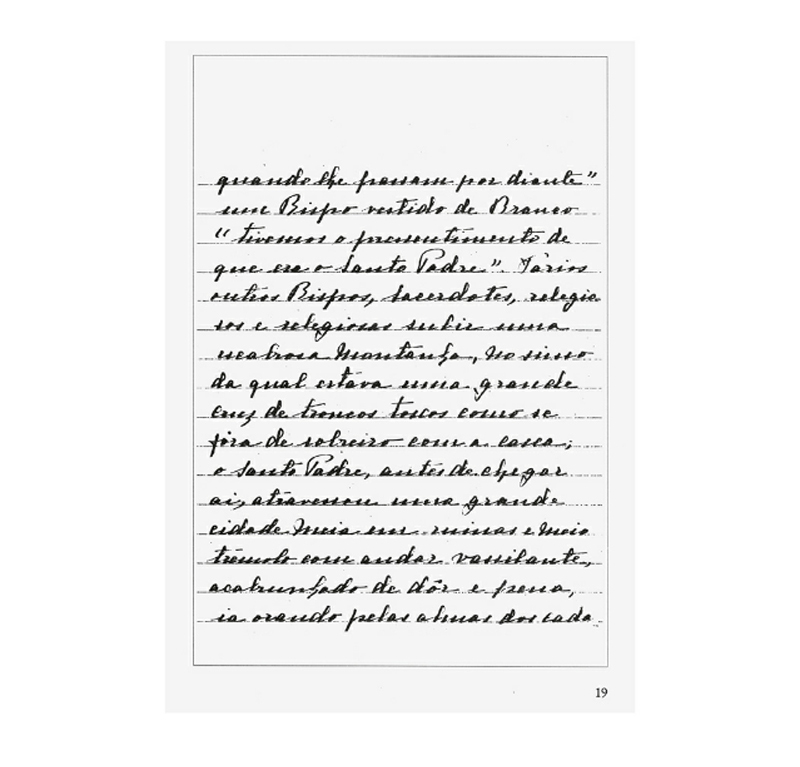 quando lhe passam por diante"
um Bispo vestido de Branco
"tivemos o pressentimento de
que era o Santo Padre". Varios
outros Bispos, sacerdotes, religio
sos e religiosas subir uma
escabrosa montanha, no simo
da qual estava uma grande
cruz de troncos toscos como se
fôra de sobreiro com a casca;
o Santo Padre, antes de chegar
aí, atravessou uma grande
cidade meia em ruinas e meio
trémulo com andar vassilante,
acabrunhado de dôr e pena,
ia orando pelas almas dos cada
19